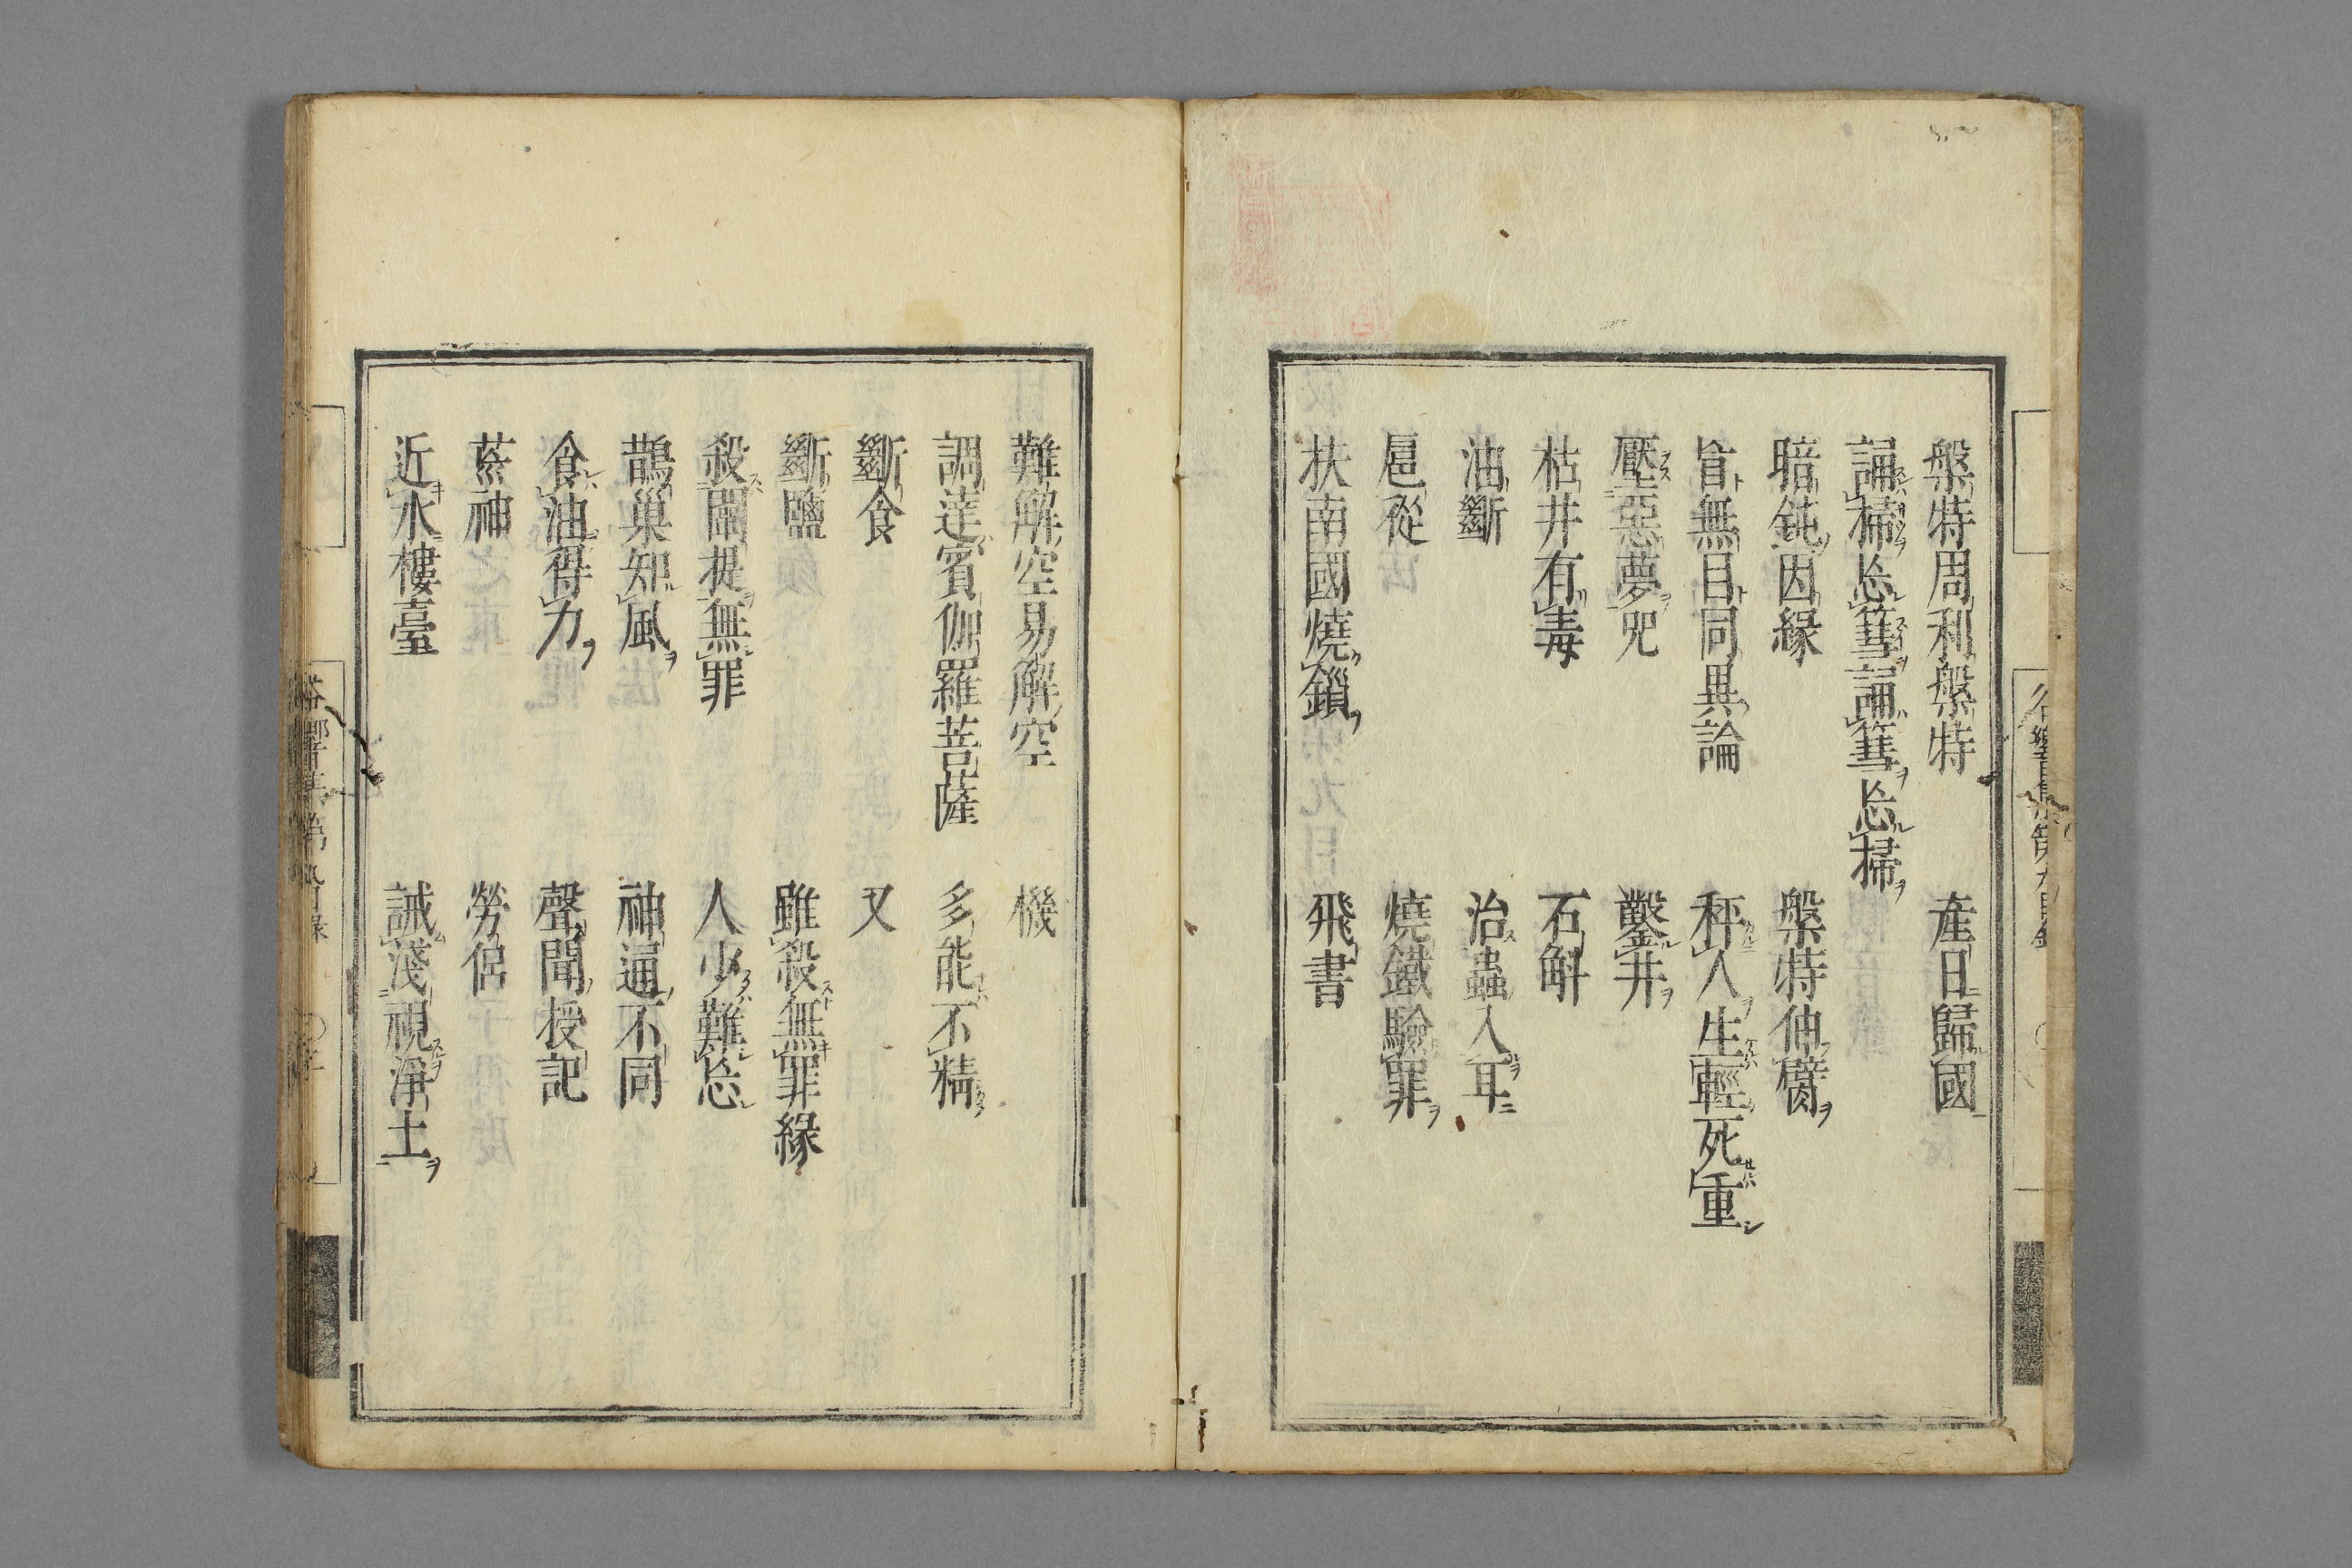 槃特周利槃特　産日歸國
誦掃忘篲誦篲忘掃
暗鈍因緣　槃特伸臂
盲無目同異論　秤人生輕死重
壓惡夢咒　鑿井
枯井有毒　石斛
油斷　治蟲入耳
扈從　燒鐵驗罪
扶南國燒鎻　飛書
難解空易解空　機
調達賓伽羅菩薩　多能不精
斷食　又
斷鹽　雖殺無罪緣
殺闡提無罪　人少難忘
鵲巢知風　神通不同
食油得力　聲聞授記
蒸神　勞侶
近水樓臺　誡淺視淨土